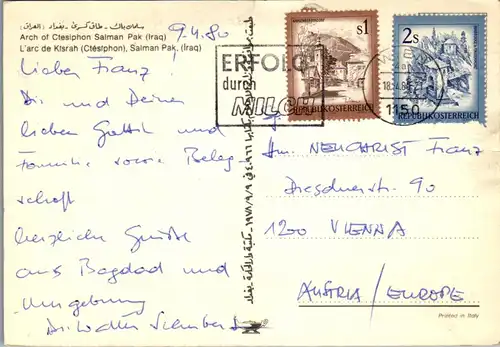 سلمان باك - طاق كسرى - بغداد : العراق :
Arch of Ctesiphon Salman Pak (Iraq)
L'arc de Kisrah (Ctésiphon), Salman Pak. (Iraq)
9.4.80
Lieber Franz!
Dir und Deiner
lieben Gattin und
Familie sowie Beleg-
schaft
herzliche Grüße
aus Bagdad und
Umgebung
Dr. Walter
ERFOLG
durch
MILCH
s1
REPUBLIK ÖSTERREICH
2s
REPUBLIK ÖSTERREICH
1150
Hrn. NEUCHRIST Franz
Dresdnerstr. 90
1200 VIENNA
AUSTRIA / EUROPE
Printed in Italy